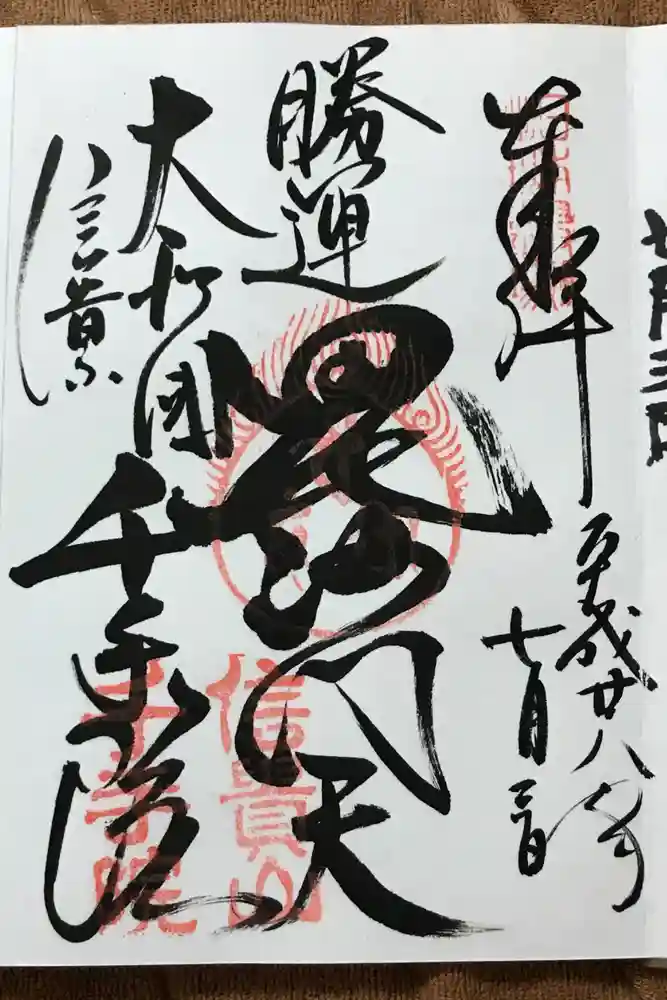 奉拝
平成廿八年
七月三日
勝運
毘沙門天
大和國
信貴山
千手院
信貴山
千手院
七月三日